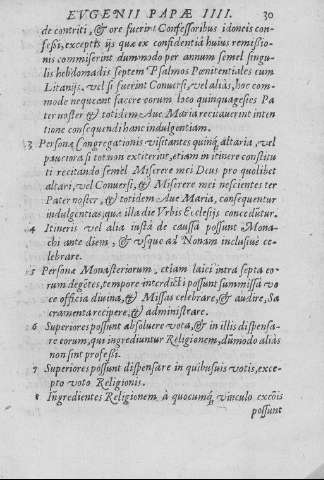 EVGENII PAPÆ IIII. 30
de contriti, & ore fuerint Confessoribus idoneis con-
fessi, exceptis ijs quæ ex confidentia huius remissio-
nis commiserint dummodo per annum semel singu-
lis hebdomadis septem Psalmos Pœnitentiales cum
Litanijs, vel si fuerint Conuersi, vel aliàs, hoc com-
mode nequeant facere eorum loco quinquagesies Pa
ter noster & totidem Aue Maria recitauerint inten
tione consequendi hanc indulgentiam.
3 Personæ Congregationis visitantes quinq; altaria, vel
pauciora si tot non extiterint, etiam in itinere constitu
ti recitando semel Miserere mei Deus pro quolibet
altari, vel Conuersi, & Miserere mei nescientes ter
Pater noster, & totidem Aue Maria, consequentur
indulgentias, quæ illa die Vrbis Ecclesijs concedūtur.
4 Itineris vel alia iusta de caussa possunt Mona-
chi ante diem, & vsque ad Nonam inclusiuè ce-
lebrare.
5 Personæ Monasteriorum, etiam laici intra septa eo-
rum degētes, tempore interdicti possunt summissa vo
ce officia diuina, & Missas celebrare, & audire, Sa
cramenta recipere, & administrare.
6 Superiores possunt absoluere vota, & in illis dispensa-
re eorum, qui ingrediuntur Religionem, dūmodo aliàs
non sint professi.
7 Superiores possunt dispensare in quibusuis votis, exce-
pto voto Religionis.
8 Ingredientes Religionem à quocumq; vinculo excōis
possunt